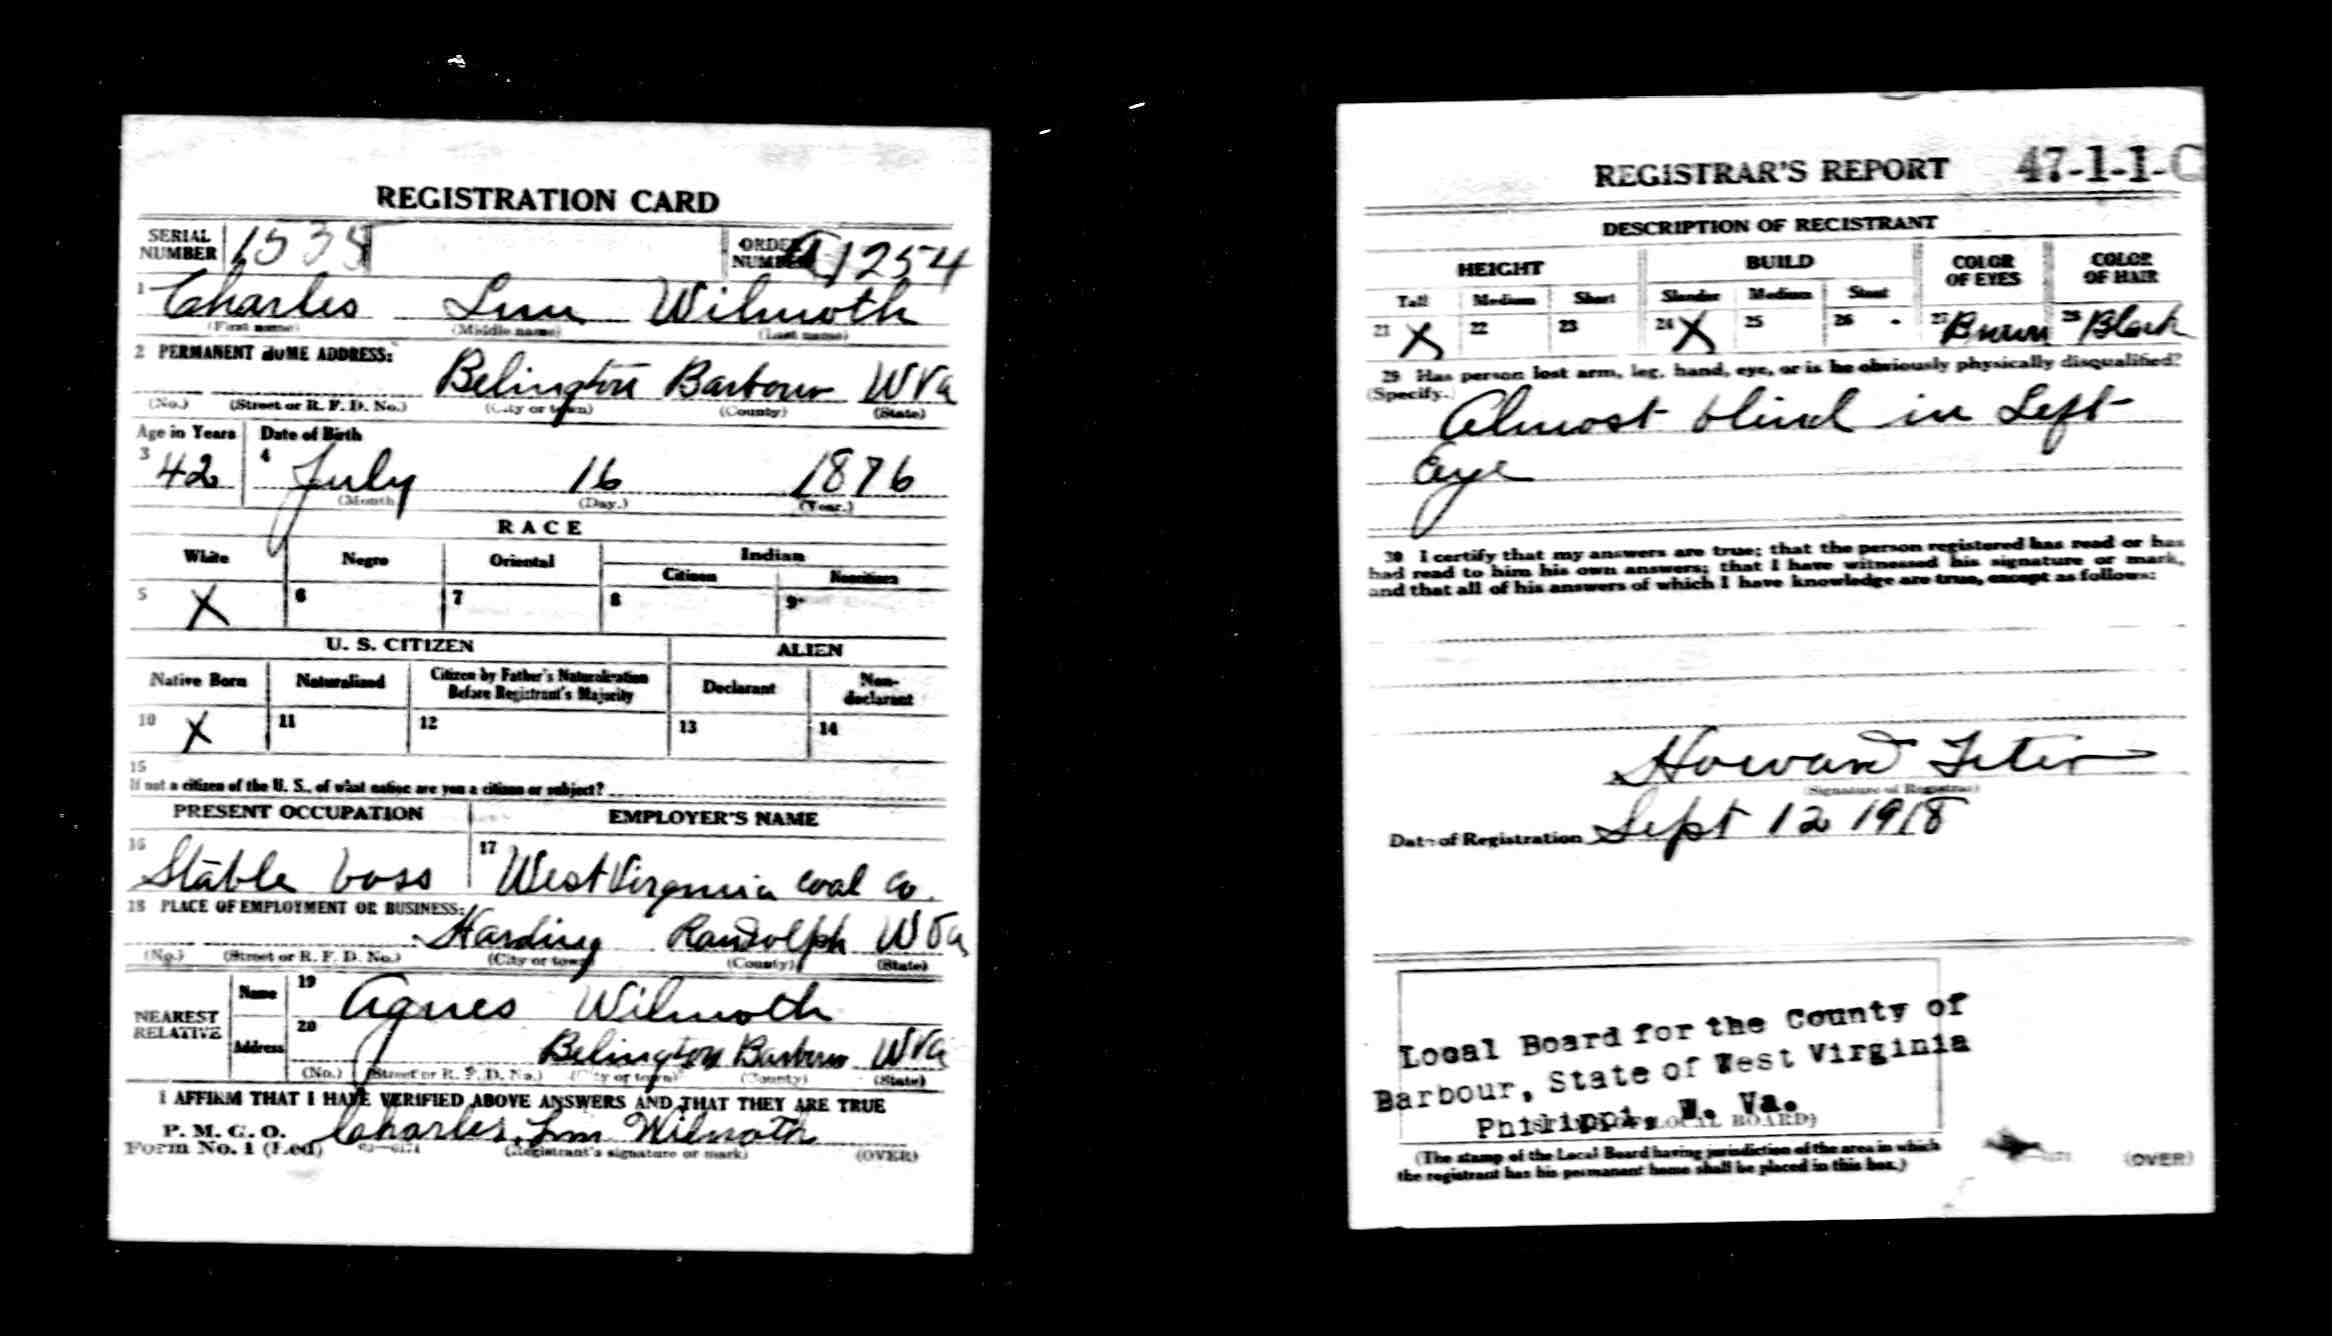 REGISTRATION CARD
SERIAL NUMBER 1538
ORDER NUMBER A1254
1 Charles Wilmoth
(First name) (Middle name) (Last name)
2 PERMANENT HOME ADDRESS:
Belington Barbour W Va
(No.) (Street or R. F. D. No.) (City or town) (County) (State)
Age in Years Date of Birth
3 42 4 July 16 1876
(Month) (Day.) (Year.)
RACE
White Negro Oriental Indian
Citizen Noncitizen
5 X 6 7 8 9
U. S. CITIZEN ALIEN
Native Born Naturalized Citizen by Father's Naturalization Before Registrant's Majority Declarant Non-declarant
10 X 11 12 13 14
15
If not a citizen of the U. S., of what nation are you a citizen or subject?
PRESENT OCCUPATION EMPLOYER'S NAME
16 Stable boss 17 West Virginia Coal Co.
18 PLACE OF EMPLOYMENT OR BUSINESS:
Harding Randolph W Va
(No.) (Street or R. F. D. No.) (City or town) (County) (State)
NEAREST RELATIVE
Name 19 Agnes Wilmoth
Address 20 Belington Barbour W Va
(No.) (Street or R. F. D. No.) (City or town) (County) (State)
I AFFIRM THAT I HAVE VERIFIED ABOVE ANSWERS AND THAT THEY ARE TRUE
P. M. G. O.
Form No. 1 (Red) Charles Wilmoth
(Registrant's signature or mark) (OVER)
REGISTRAR'S REPORT 47-1-1-C
DESCRIPTION OF REGISTRANT
HEIGHT BUILD COLOR OF EYES COLOR OF HAIR
Tall Medium Short Slender Medium Stout
21 X 22 23 24 X 25 26 27 Brown 28 Black
29 Has person lost arm, leg, hand, eye, or is he obviously physically disqualified?
(Specify.) Almost blind in Left
Eye
30 I certify that my answers are true; that the person registered has read or has
had read to him his own answers; that I have witnessed his signature or mark,
and that all of his answers of which I have knowledge are true, except as follows:
Howard Teter
(Signature of Registrar)
Date of Registration Sept 12 1918
Local Board for the County of
Barbour, State of West Virginia
Philippi, W. Va.
LOCAL BOARD)
(The stamp of the Local Board having jurisdiction of the area in which
the registrant has his permanent home shall be placed in this box.)
(OVER)